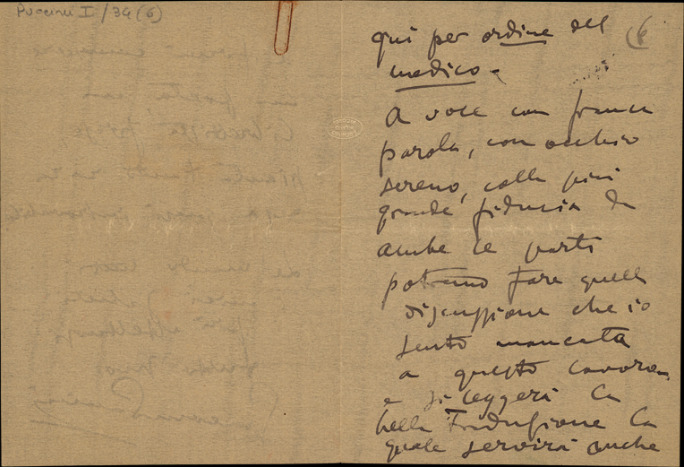 Puccini I/34(6)
6
qui per ordine del
medico -
A voce con franca
parola, con occhio
sereno, colla più
grande fiducia da
ambe le parti
potranno fare quella
discussione che io
sento mancata
a questo lavoro
e si leggerà la
bella Traduzione la
quale servirà anche